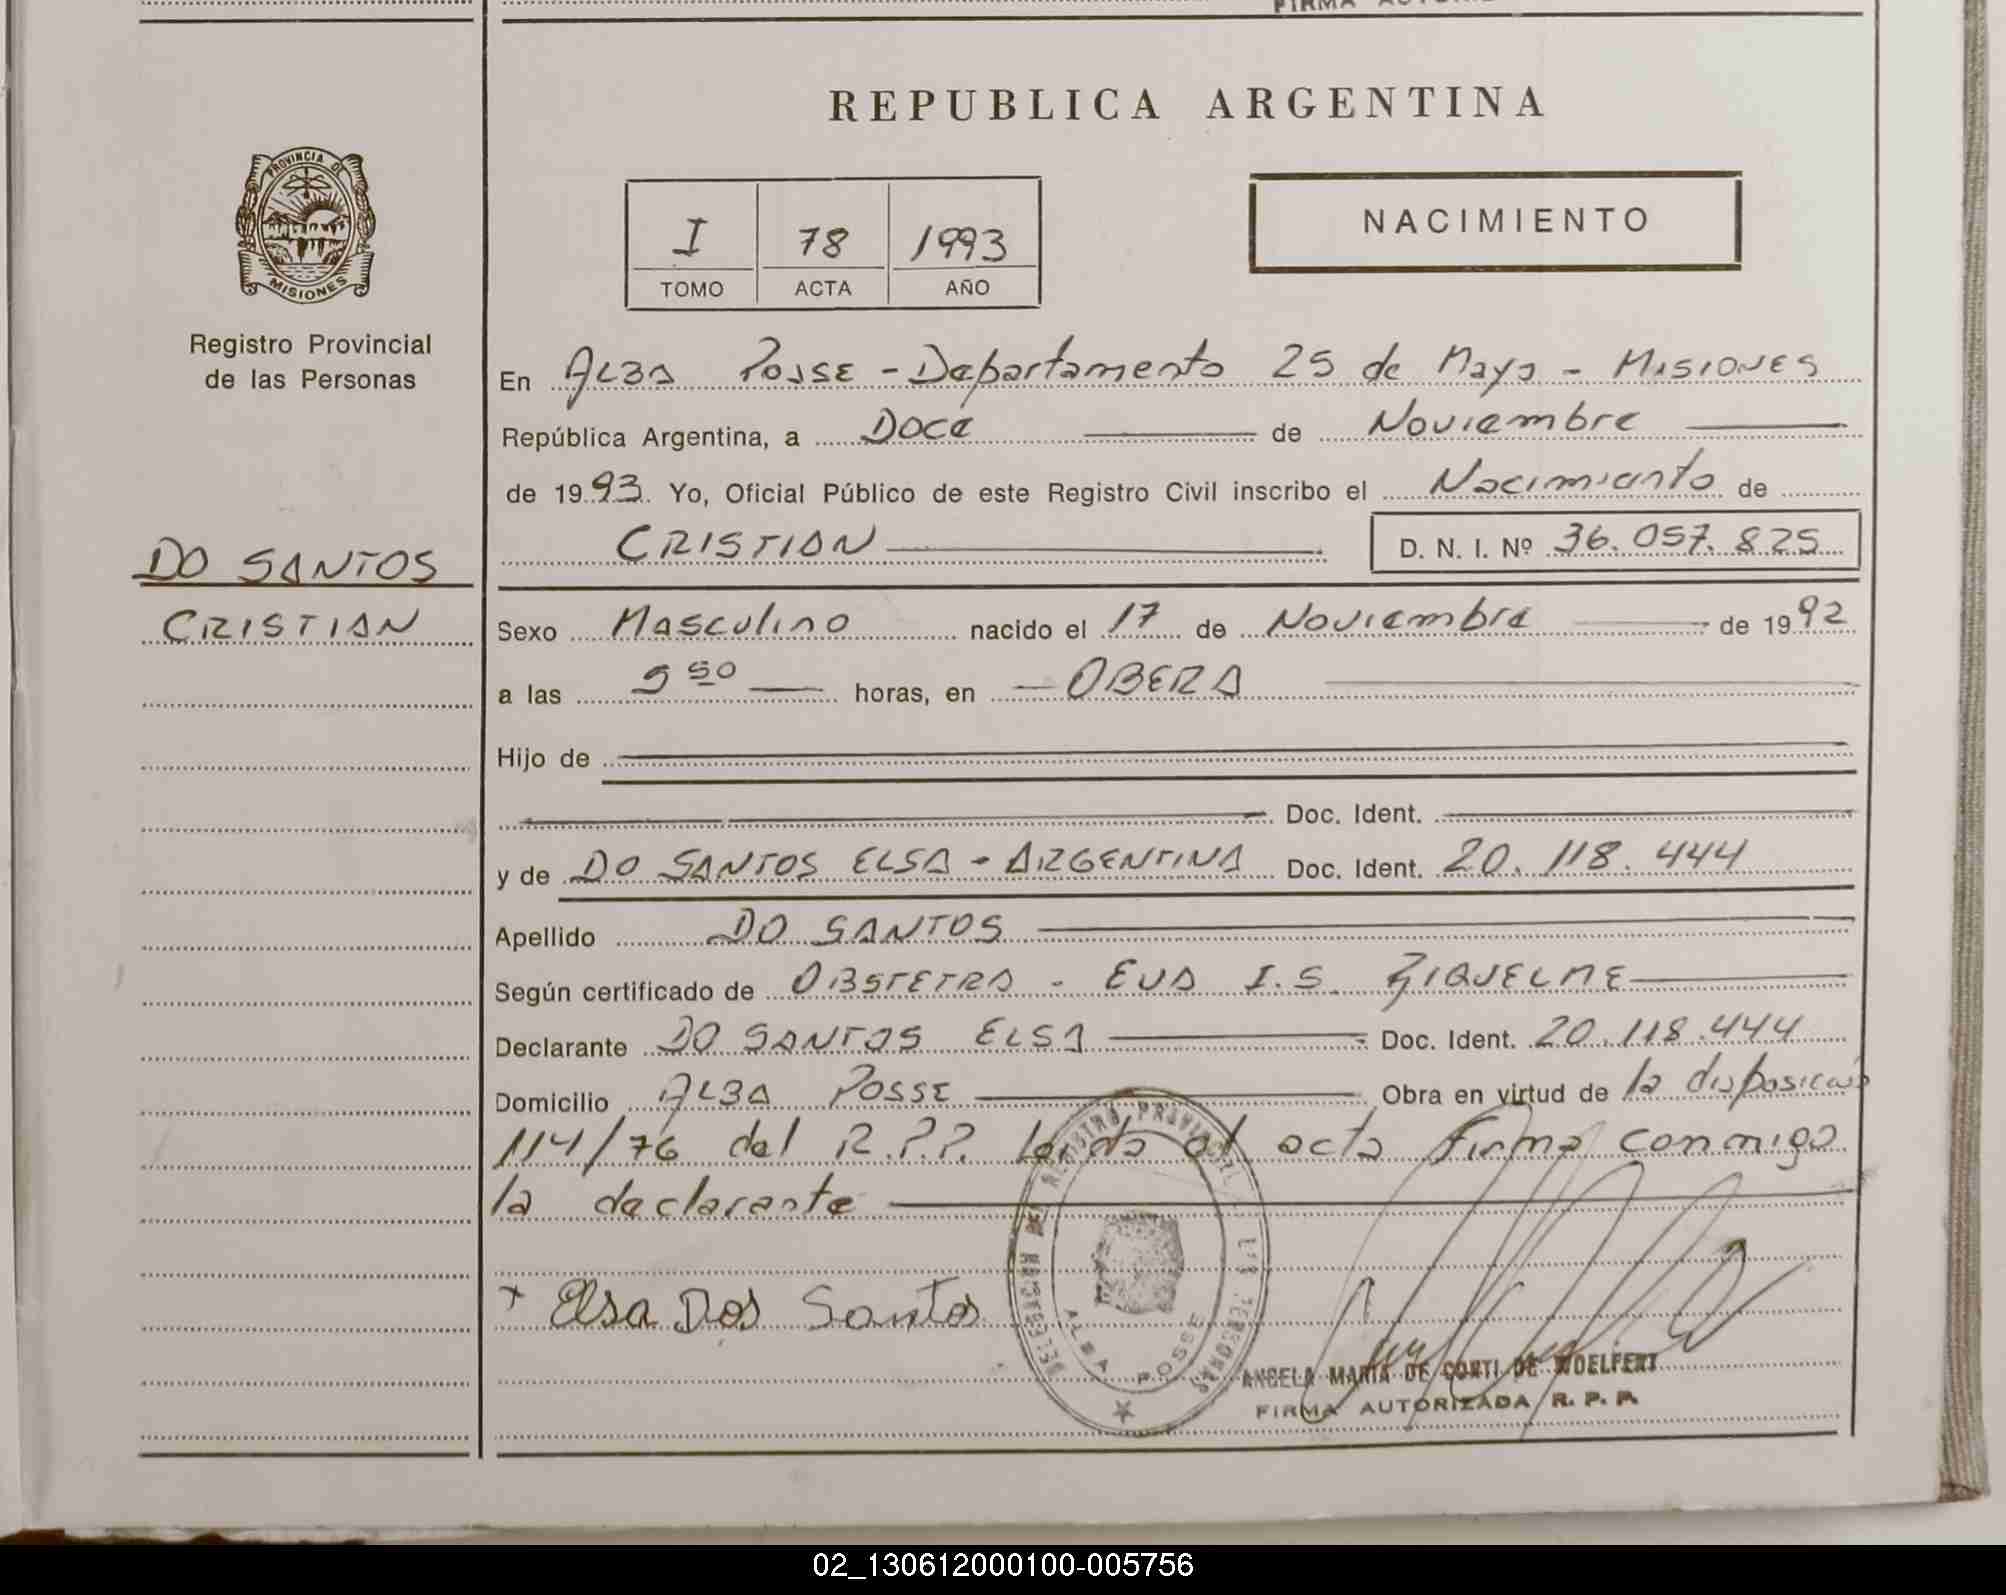 FIRMA AUTORIZ
REPUBLICA ARGENTINA
PROVINCIA DE
MISIONES
Registro Provincial
de las Personas
I 78 1993
TOMO ACTA AÑO
NACIMIENTO
En Alba Posse - Departamento 25 de Mayo - Misiones
República Argentina, a Doce de Noviembre
de 1993. Yo, Oficial Público de este Registro Civil inscribo el Nacimiento de
CRISTIAN D. N. I. Nº 36.057.825
DO SANTOS
CRISTIAN
Sexo Masculino nacido el 17 de Noviembre de 1992
a las 5 50 horas, en OBERA
Hijo de
Doc. Ident.
y de DO SANTOS ELSA - ARGENTINA Doc. Ident. 20.118.444
Apellido DO SANTOS
Según certificado de OBSTETRA - EVA I.S. RIQUELME
Declarante DO SANTOS ELSA Doc. Ident. 20.118.444
Domicilio ALBA POSSE Obra en virtud de la disposición
114/76 del R.P.P. Leida el acta firma conmigo
la declarante
Elsa Dos Santos
DELEGACION DEL REGISTRO PROVINCIAL DE LAS PERSONAS
ALBA POSSE
ANGELA MARIA DE CORTI DE WOELFERT
FIRMA AUTORIZADA R. P. P.
02_130612000100-005756